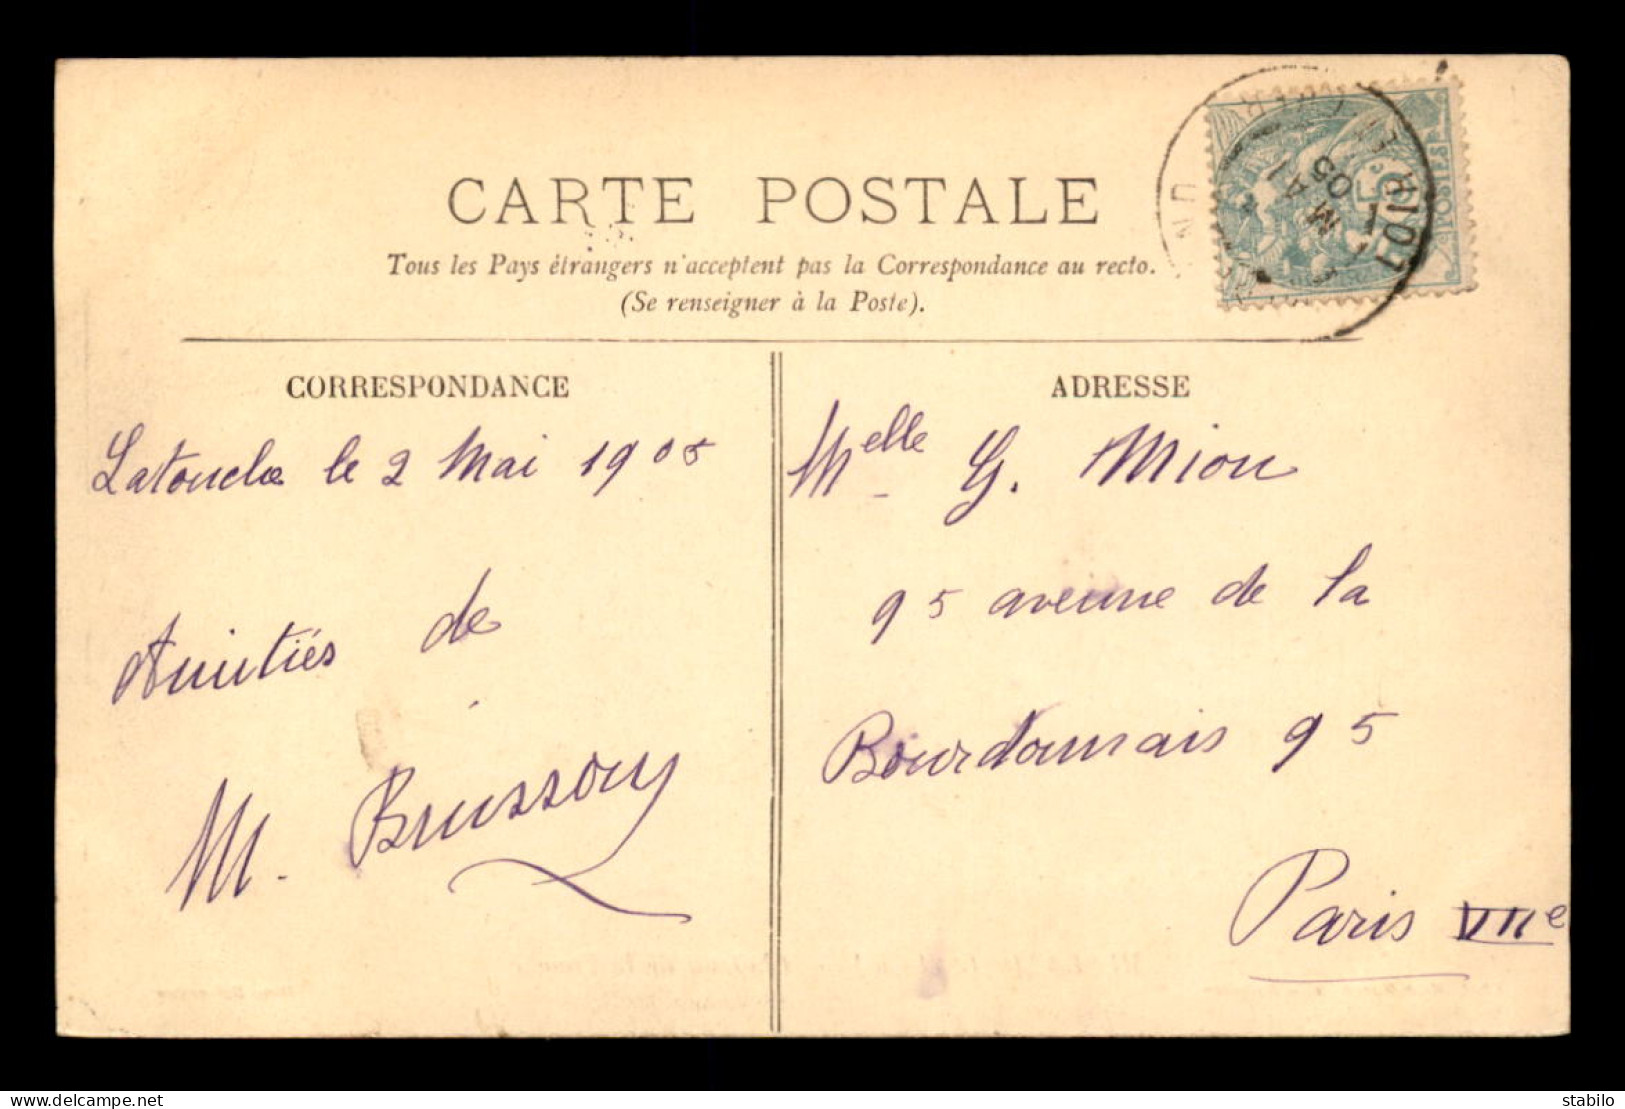 CARTE POSTALE
Tous les Pays étrangers n'acceptent pas la Correspondance au recto.
(Se renseigner à la Poste).
CORRESPONDANCE
Latouche le 2 Mai 1905
Amitiés de
M. Brussony
ADRESSE
Melle G. Mion
95 avenue de la
Bourdonnais 95
Paris VIIe
MAI
05
POSTES
stabilo